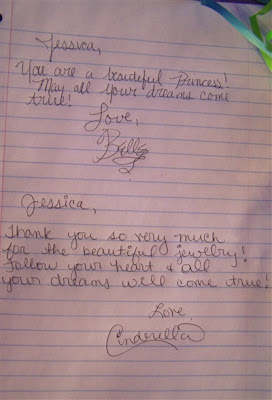 Jessica,
You are a beautiful Princess!
May all your dreams come
true!
Love,
Belle
Jessica,
Thank you so very much
for the beautiful jewelry!
Follow your heart & all
your dreams will come true!
Love,
Cinderella